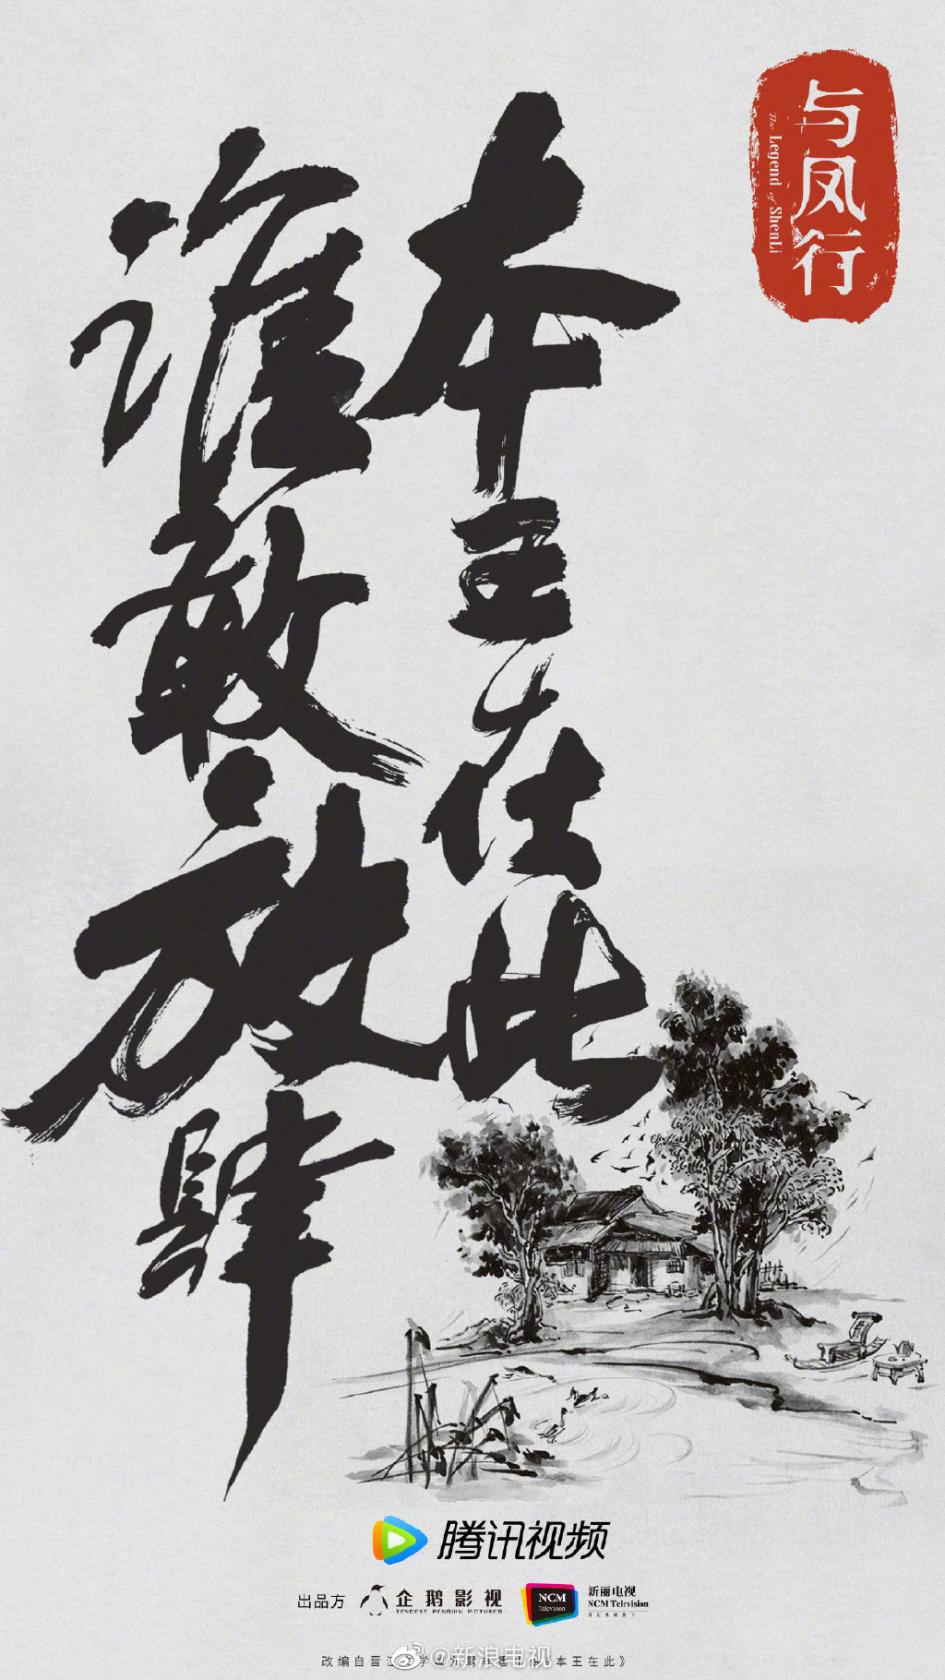 与凤行
The Legend of ShenLi
本王在此
谁敢放肆
腾讯视频
出品方
企鹅影视
TENCENT PENGUIN PICTURES
NCM
Television
新丽电视
NCM Television
改编自晋江文学
本王在此》
@新浪电视